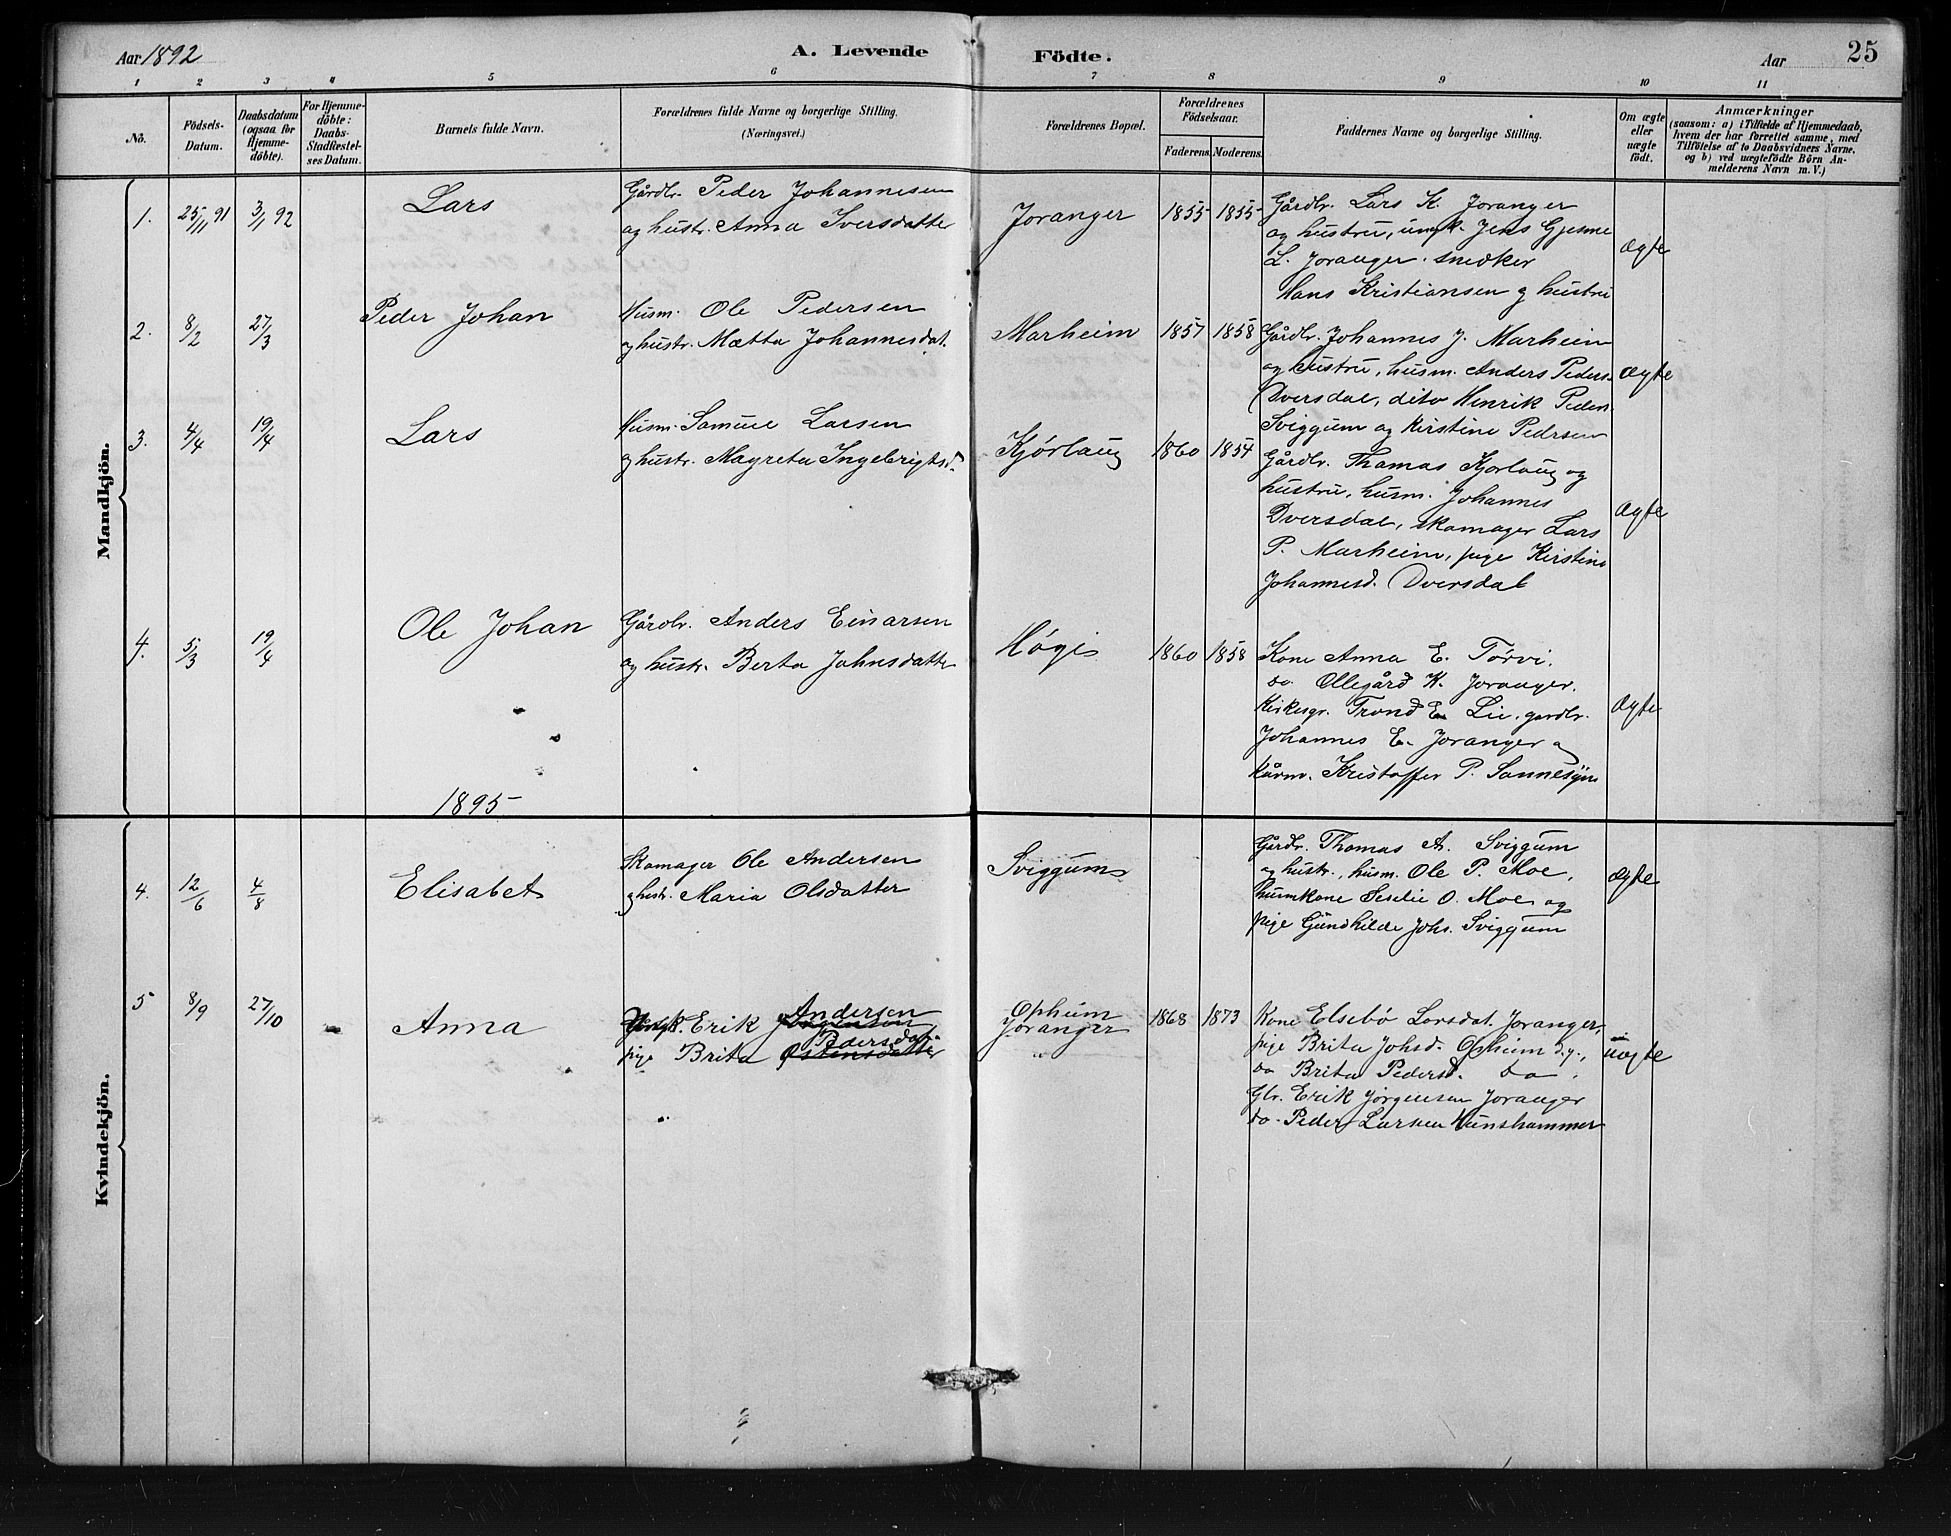 Aar 1892
A. Levende Födte.
Aar
25
1 2 3 4 5 6 7 8 9 10 11
No.
Födsels-Datum.
Daabsdatum (ogsaa for Hjemme-döbte).
For Hjemme-döbte: Daabs-Stadfæstel-ses Datum.
Barnets fulde Navn.
Forældrenes fulde Navne og borgerlige Stilling.
(Næringsvei.)
Forældrenes Bopæl.
Forældrenes Födselsaar.
Faderens. Moderens.
Faddernes Navne og borgerlige Stilling.
Om ægte eller uægte födt.
Anmærkninger
(saasom: a) i Tilfælde af Hjemmedaab,
hvem der har forrettet samme, med
Tilföielse af to Daabsvidners Navne,
og b) ved uægtefödte Börn An-
melderens Navn m. V.)
Mandkjön.
1. 25/11 91 3/1 92 Lars
Gårdbr. Peder Johannesen
og hustr. Anna Iversdatter
Joranger 1855 1855
Gårdbr. Lars K. Joranger
og hustru, ungk. Jens Gjesme
L. Joranger. snedker
Hans Kristiansen og hustru
Ægte
2. 8/2 27/3 Peder Johan
Husm. Ole Pedersen
og hustr. Mætta Johannesdat.
Marheim 1857 1858
Gårdbr. Johannes J. Marheim
og hustru, husm. Anders Peders.
Dversdal, dito Henrik Peders.
Sviggum og Kirstine Pedersen
Ægte
3. 4/4 19/4 Lars
Husm. Samuel Larsen
og hustr. Magreta Ingebrigtsd.
Kjørlaug 1860 1854
Gårdbr. Thomas Kjørlaug og
hustru, husm. Johannes
Dversdal, skomager Lars
P. Marheim, pige Kirstine
Johannesd. Dversdal
Ægte
4. 5/3 19/4 Ole Johan
Gårdbr. Anders Einarsen
og hustr. Berta Johnsdatter
Høgi 1860 1858
Kone Anna E. Torvi.
do. Ollegård K. Joranger.
Kirkesgr. Trond E. Lie, gardbr.
Johannes E. Joranger og
Kårm. Kristoffer P. Sannesyn
Ægte
1895
Kvindekjön.
4. 12/6 4/8 Elisabet
Skomager Ole Andersen
og hustr. Maria Olsdatter
Sviggum
Gårdbr. Thomas A. Sviggum
og hustr., husm. Ole P. Moe,
husmkone Seselie O. Moe og
pige Gundhilde Johs. Sviggum
Ægte
5 8/9 27/10 Anna
Andersen
Ungk. Erik Jørgenson
Pedersdat.
pige Brita Østensdatter
Opheim
Joranger
1868 1873
Kone Elsebø Larsdat. Joranger,
pige Brita Johsd. Opheim d.y.,
do Brita Pedersd. do.
Gbr. Erik Jørgensen Joranger
do. Peder Larsen Hunshammer
uægte